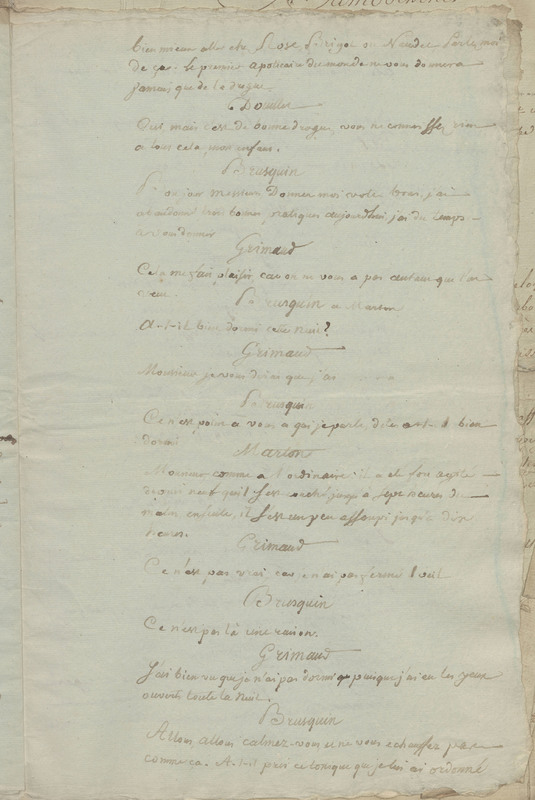 bien mieux aller chez Rose Perigot ou Naudet Parlez moi
de ça. Le premier apoticaire du monde ne vous donnera
jamais que de la drogue.
Oui, mais c'est de bonne drogue, vous ne connoissez rien
a tout cela, mon enfant.
Brusquin
Bonjour monsieur Donnez moi votre bras, j'ai
abandonné trois bonnes pratiques aujourd'hui j'ai du temps
a vous donner
Grimaud
Cela me fait plaisir, car on ne vous a pas autant qu'on
veut.
Brusquin a Marton
A-t-il bien dormi cette nuit?
Grimaud
Monsieur je vous dirai que j'ai
Brusquin
Ce n'est point a vous a qui je parle, dites a-t-il bien
dormi
Marton
Monsieur comme a l'ordinaire: il a été fort agité
neuf qu'il s'est couché jusqu'a sept heures du
matin ensuite, il s'est un peu assoupi jusqu'a dix
heures.
Grimaud
Ce n'est pas vrai, car je n'ai pas fermé l'œil
Brusquin
Ce n'est pas là une raison.
Grimaud
J'ai bien vu que je n'ai pas dormi puisque j'ai eu les yeux
ouverts toute la nuit.
Brusquin
Allons, allons calmez-vous et ne vous echauffez pas
comme ca. A-t-il pris ce tonique que je lui ai ordonné